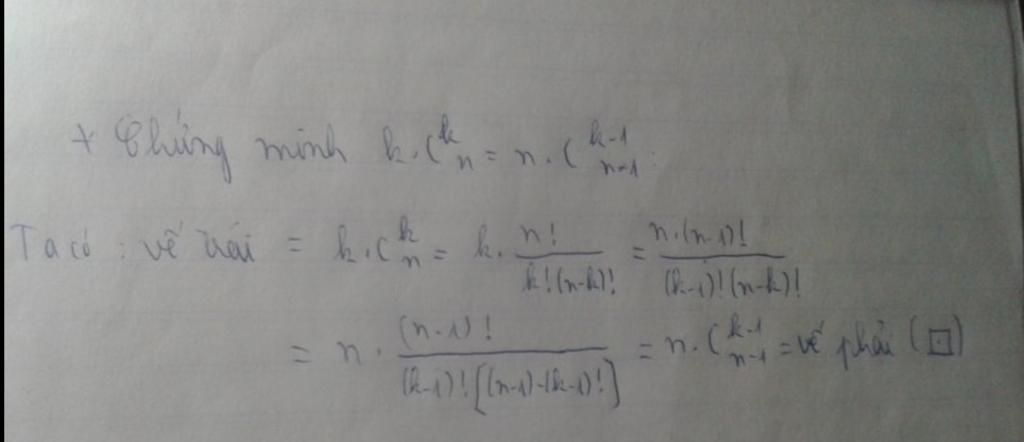 + Chứng minh k.C^k_n = n.C^{k-1}_{n-1}:
Ta có: vế trái = k.C^k_n = k.\frac{n!}{k!(n-k)!} = \frac{n.(n-1)!}{(k-1)!(n-k)!}
= n.\frac{(n-1)!}{(k-1)![(n-1)-(k-1)!]} = n.C^{k-1}_{n-1} = vế phải (□)